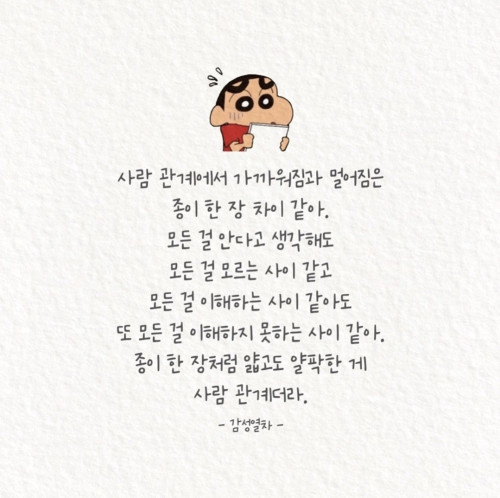 사람 관계에서 가까워짐과 멀어짐은
종이 한 장 차이 같아.
모든 걸 안다고 생각해도
모든 걸 모르는 사이 같고
모든 걸 이해하는 사이 같아도
또 모든 걸 이해하지 못하는 사이 같아.
종이 한 장처럼 얇고도 얄팍한 게
사람 관계더라.
- 감성열차 -